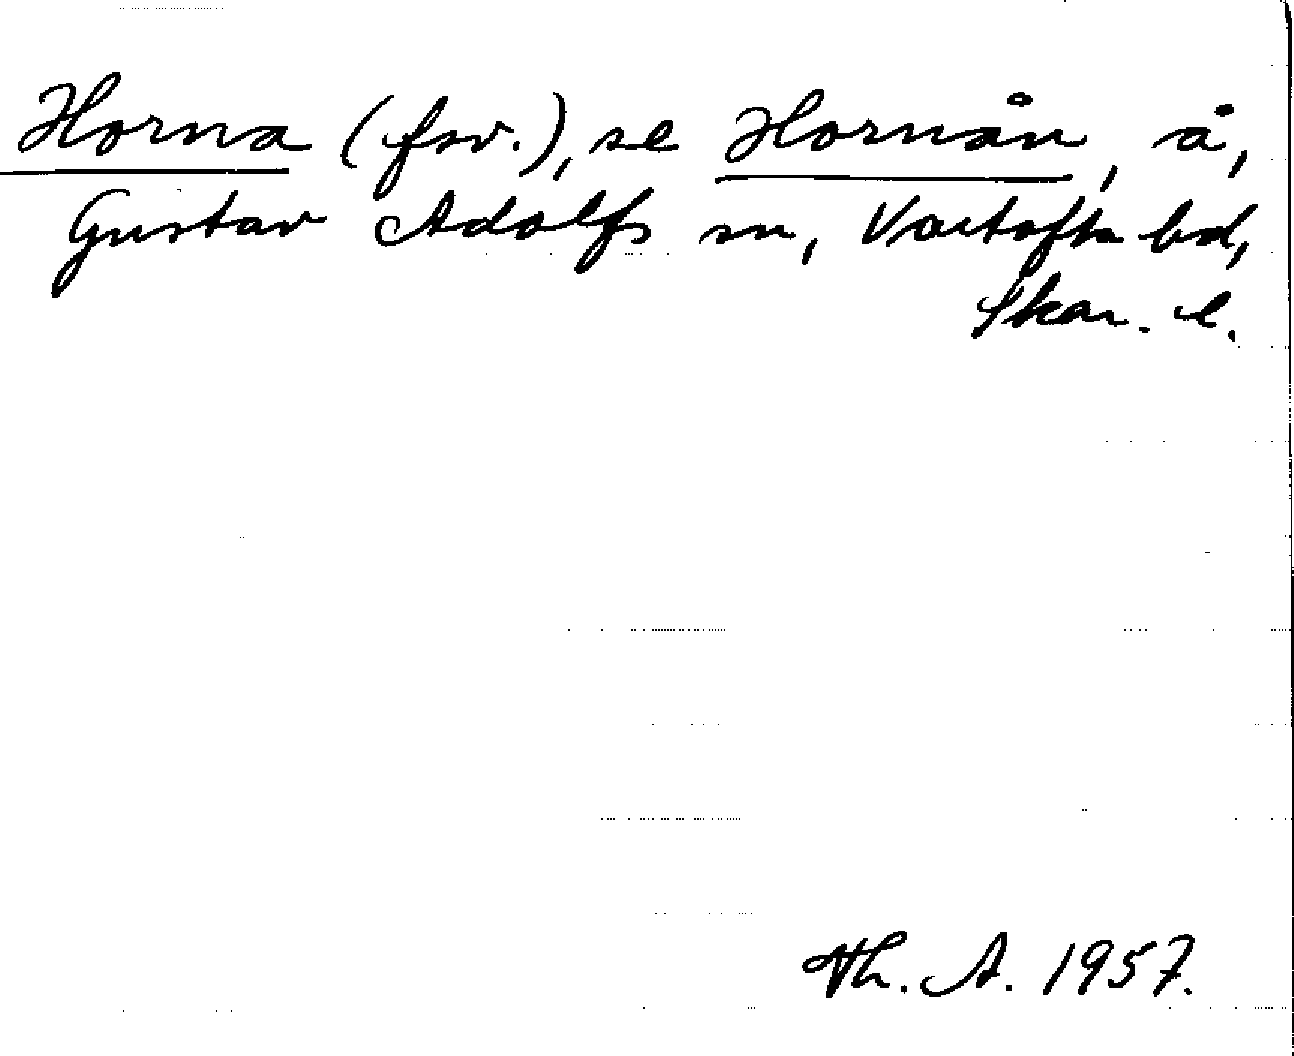 Horna (fsv.), se Hornån, å,
Gustav Adolfs sn, Vartofta hd,
Skar. l.
Th. A. 1957.